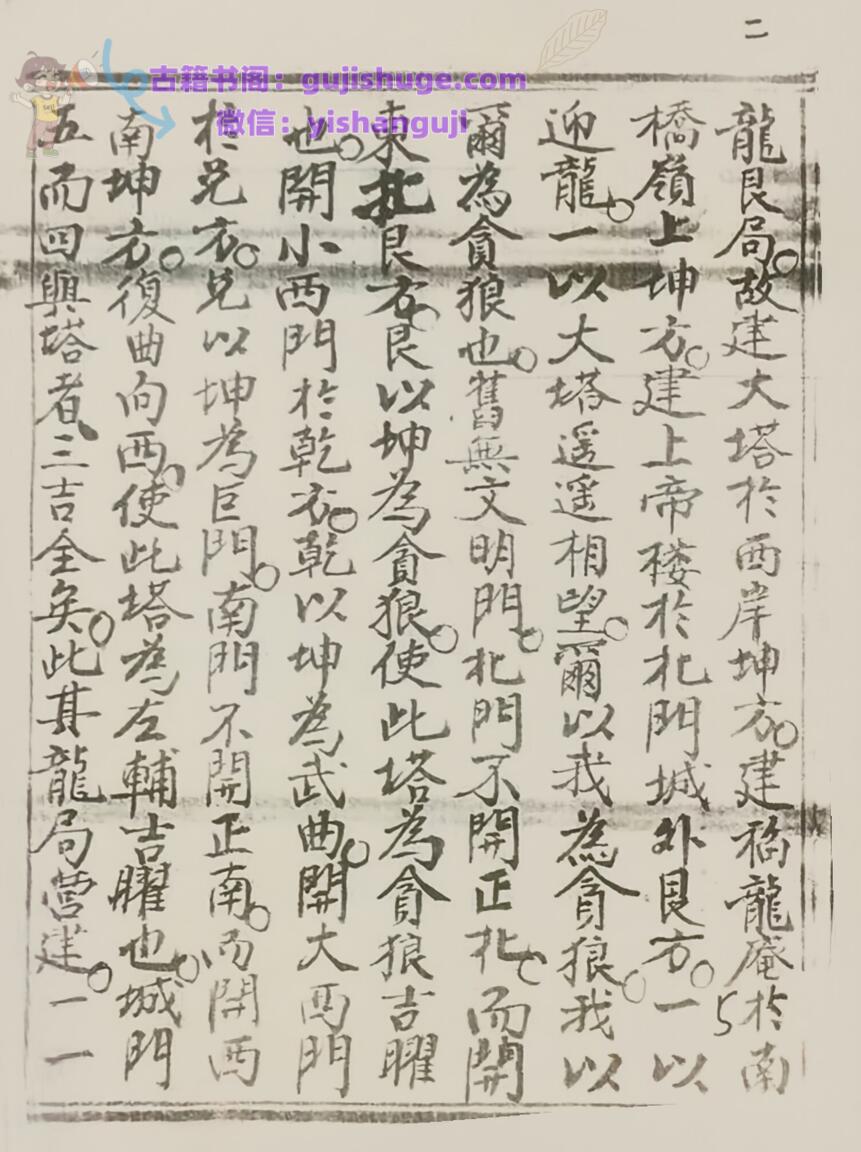 二
古籍书阁：gujishuge.com
微信：yishanguji
龍艮局。故建大塔於西岸坤方。建稻龍庵於南
橋嶺上坤方。建上帝楼於北門城外艮方。一以
迎龍。一以大塔遥遥相望。爾以我為貪狼。我以
爾為貪狼也。舊無文明門。北門不開正北。而開
東北艮方。艮以坤為貪狼。使此塔為貪狼吉曜
也。開小西門於乾方。乾以坤為武曲。開大西門
於兌方。兌以坤為巨門。南門不開正南。而開西
南坤方。復曲向西。使此塔為左輔吉曜也。城門
五而四與塔者三吉全矣。此其龍局营建。一一